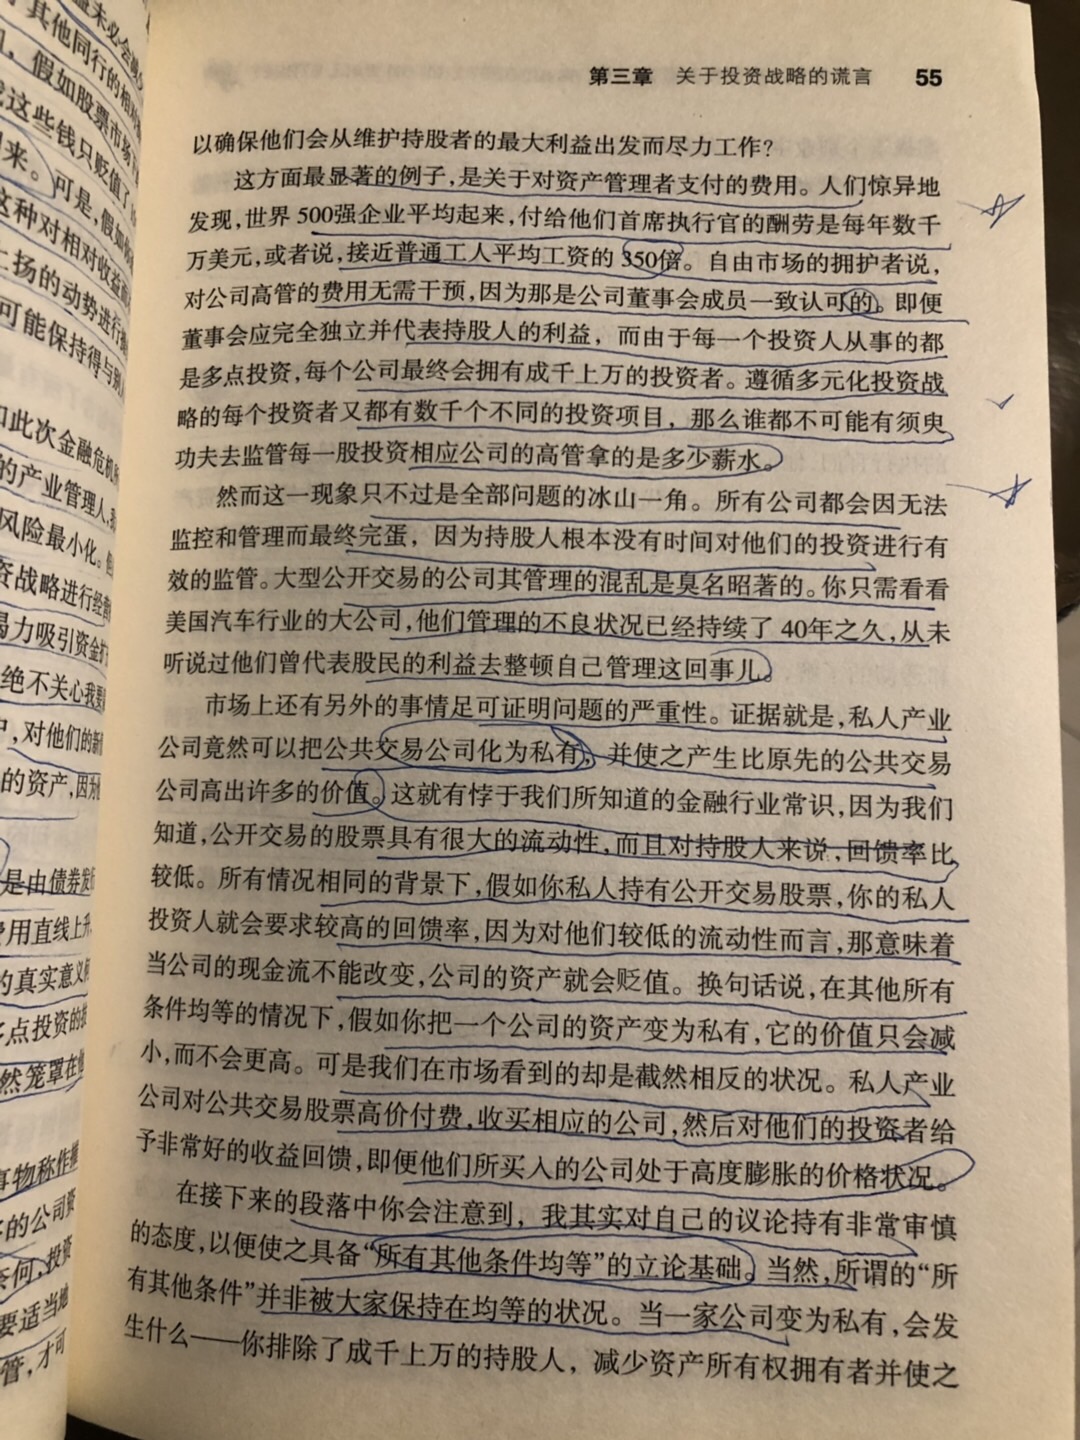 益未必会
其他同行的相对
假如股票市场
这些钱只贬值了
来。可是，假如
这种对相对收益
上扬的动势进行
可能保持得与别
如此次金融危机
的产业管理人，
风险最小化。
资战略进行经营
竭力吸引资金
绝不关心我
中，对他们的新
的资产，因为
是由债券发
费用直线上升
的真实意义
多点投资的
然笼罩在他
事物称作
的公司资
奈何，投资
要适当地
管，才可
第三章 关于投资战略的谎言 55
以确保他们会从维护持股者的最大利益出发而尽力工作？
这方面最显著的例子，是关于对资产管理者支付的费用。人们惊异地
发现，世界500强企业平均起来，付给他们首席执行官的酬劳是每年数千
万美元，或者说，接近普通工人平均工资的350倍。自由市场的拥护者说，
对公司高管的费用无需干预，因为那是公司董事会成员一致认可的。即便
董事会应完全独立并代表持股人的利益，而由于每一个投资人从事的都
是多点投资，每个公司最终会拥有成千上万的投资者。遵循多元化投资战
略的每个投资者又都有数千个不同的投资项目，那么谁都不可能有须臾
功夫去监管每一股投资相应公司的高管拿的是多少薪水。
然而这一现象只不过是全部问题的冰山一角。所有公司都会因无法
监控和管理而最终完蛋，因为持股人根本没有时间对他们的投资进行有
效的监管。大型公开交易的公司其管理的混乱是臭名昭著的。你只需看看
美国汽车行业的大公司，他们管理的不良状况已经持续了40年之久，从未
听说过他们曾代表股民的利益去整顿自己管理这回事儿。
市场上还有另外的事情足可证明问题的严重性。证据就是，私人产业
公司竟然可以把公共交易公司化为私有，并使之产生比原先的公共交易
公司高出许多的价值。这就有悖于我们所知道的金融行业常识，因为我们
知道，公开交易的股票具有很大的流动性，而且对持股人来说，回馈率比
较低。所有情况相同的背景下，假如你私人持有公开交易股票，你的私人
投资人就会要求较高的回馈率，因为对他们较低的流动性而言，那意味着
当公司的现金流不能改变，公司的资产就会贬值。换句话说，在其他所有
条件均等的情况下，假如你把一个公司的资产变为私有，它的价值只会减
小，而不会更高。可是我们在市场看到的却是截然相反的状况。私人产业
公司对公共交易股票高价付费，收买相应的公司，然后对他们的投资者给
予非常好的收益回馈，即便他们所买入的公司处于高度膨胀的价格状况。
在接下来的段落中你会注意到，我其实对自己的议论持有非常审慎
的态度，以便使之具备“所有其他条件均等”的立论基础。当然，所谓的“所
有其他条件”并非被大家保持在均等的状况。当一家公司变为私有，会发
生什么——你排除了成千上万的持股人，减少资产所有权拥有者并使之